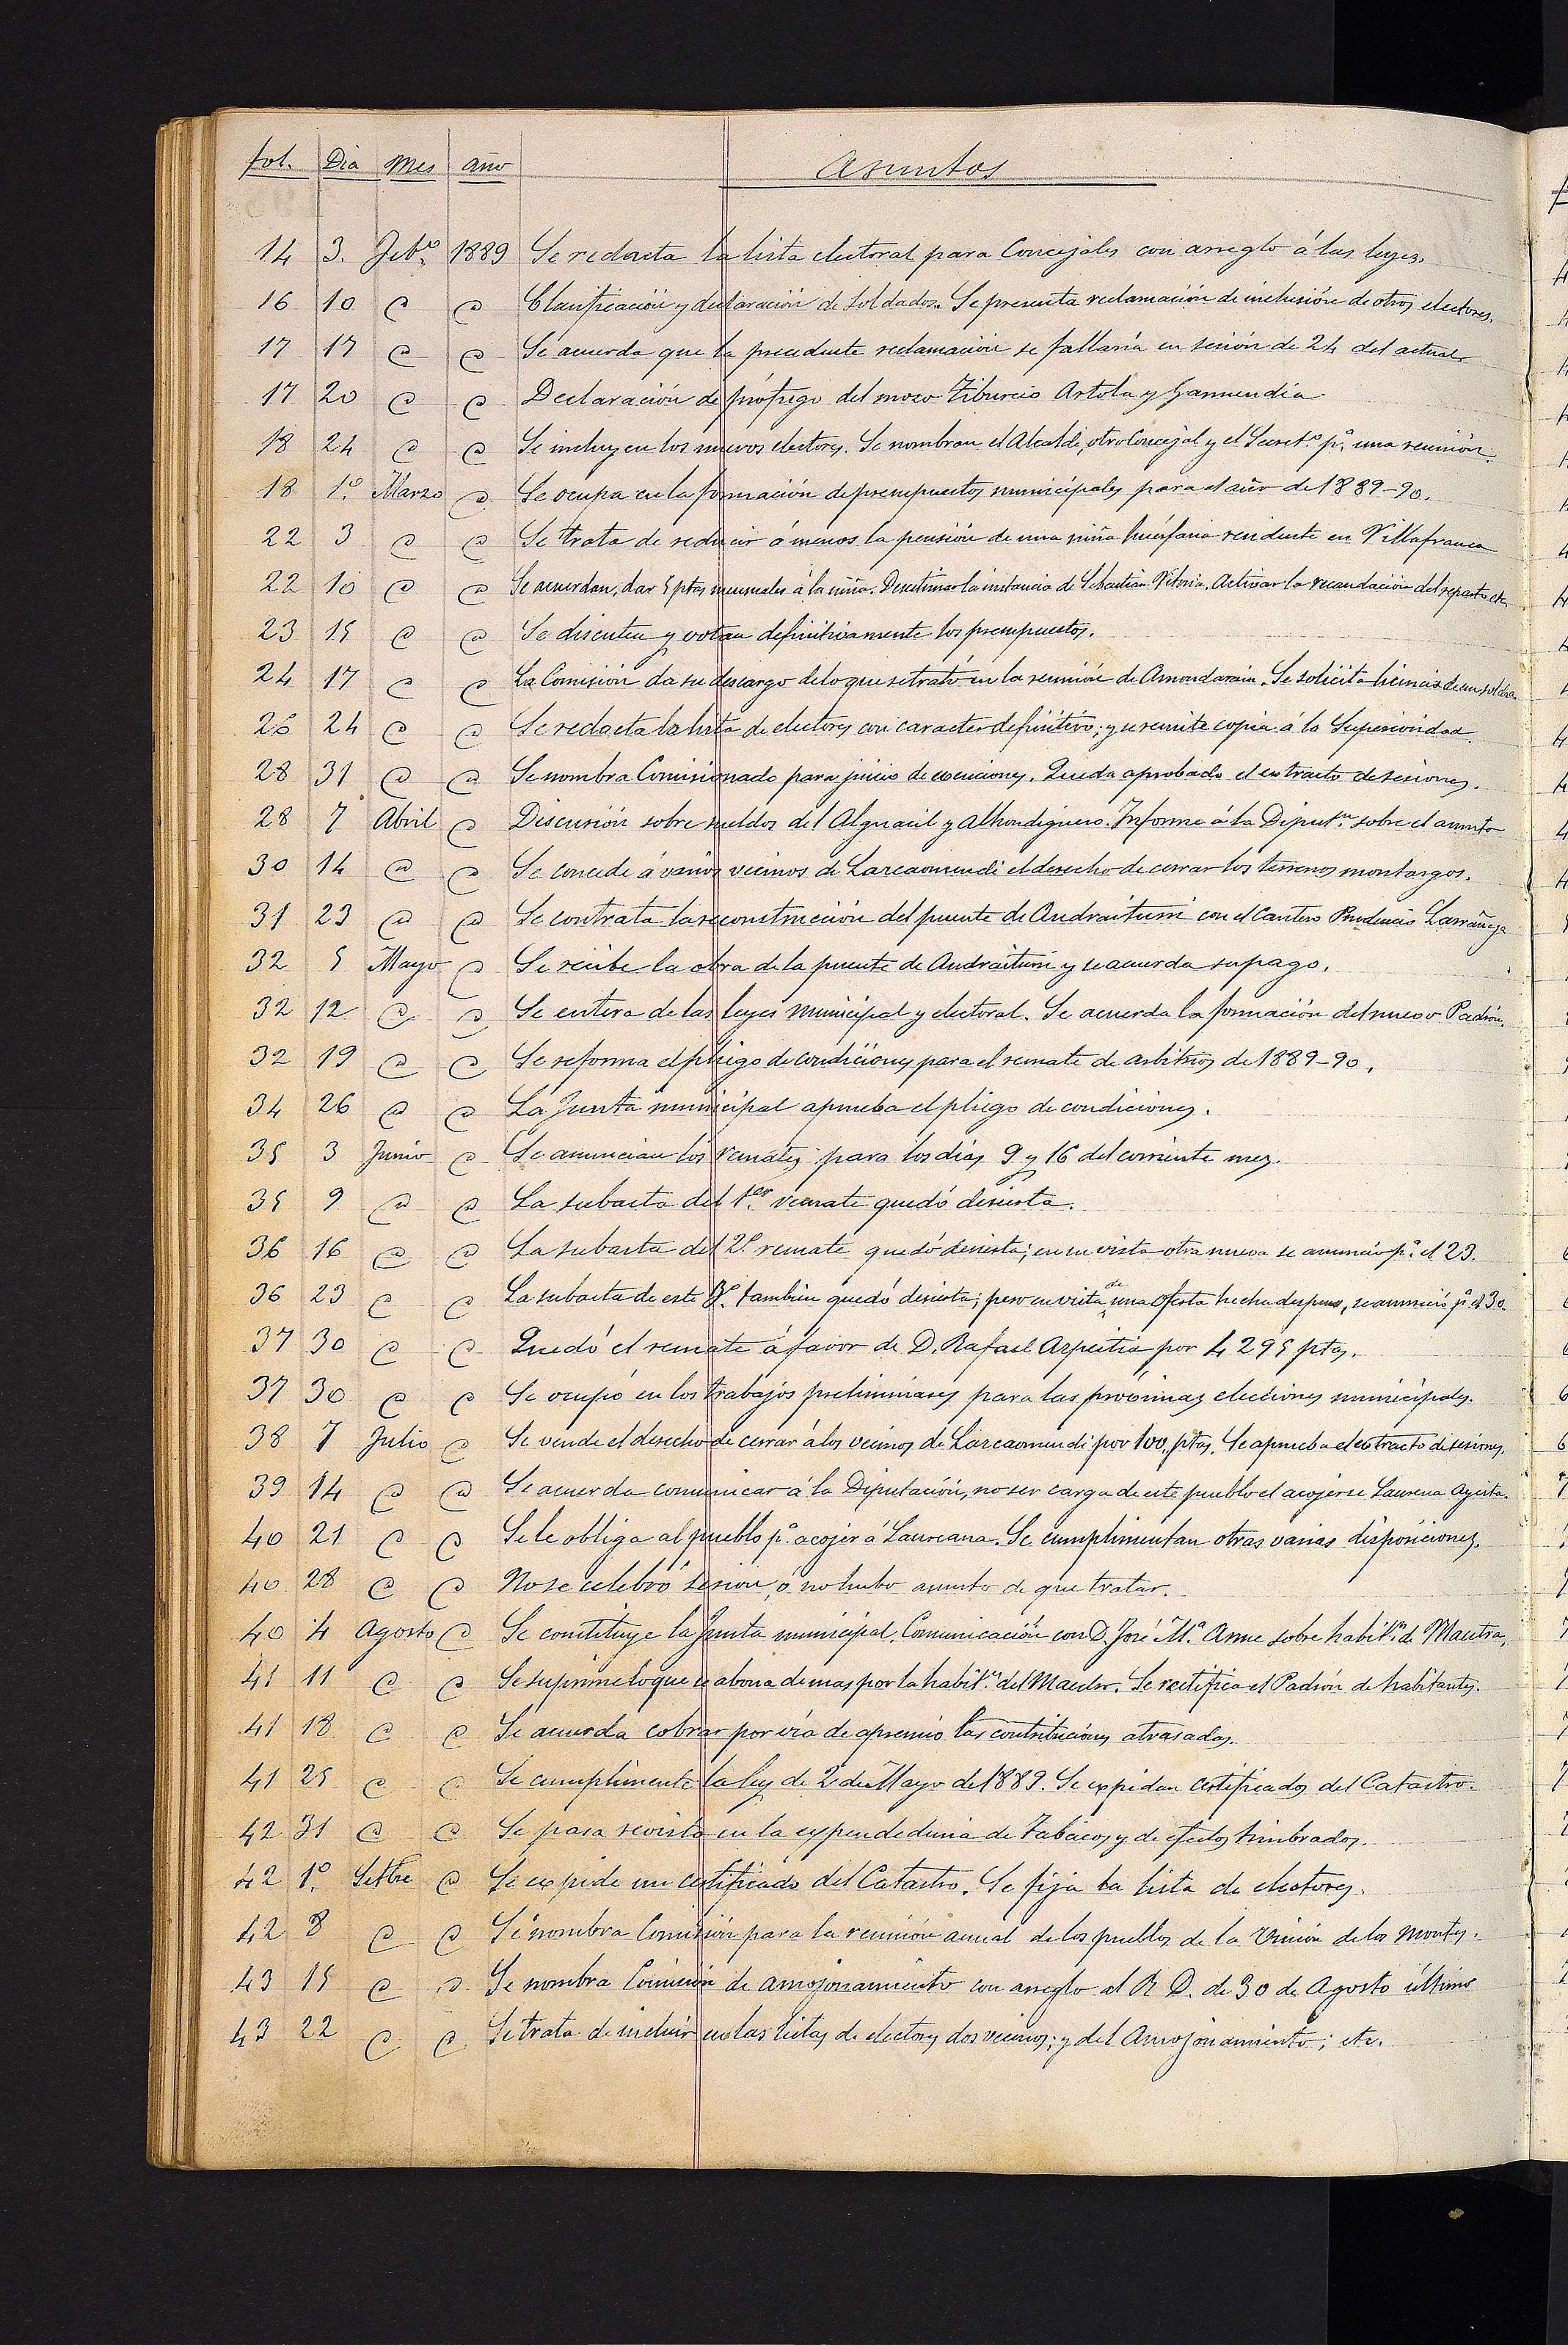 fol. Dia Mes año Asuntos
14 3. Feb.º 1889 Se redacta la lista electoral para Concejales con arreglo á las leyes.
16 10 @ @ Clasificación y declaración de soldados. Se presenta reclamación de inclusión de otros electores.
17 17 @ @ Se acuerda que la precedente reclamación se fallaría en sesión de 24 del actual
17 20 @ @ Declaración de prófugo del mozo Tiburcio Artola y Garmendia
18 24 @ @ Se incluyen los nuevos electores. Se nombran el Alcalde, otro Concejal y el Secret.º p.ª una reunión.
18 1.º Marzo @ Se ocupa en la formación de presupuestos municipales para el año de 1889-90.
22 3 @ @ Se trata de reducir á menos la pensión de una niña huérfana residente en Villafranca
22 10 @ @ Se acuerdan, dar 5 ptas mensuales á la niña. Desestimar la instancia de Sebastian Vitoria. Activar la recaudación del reparto etc.
23 15 @ @ Se discuten y votan definitivamente los presupuestos.
24 17 @ @ La Comisión da su descargo de lo que se trató en la reunión de Amondarain. Se solicita licencia de un soldado
26 24 @ @ Se redacta la lista de electores con caracter definitivo; y se remite copia á la Superioridad.
28 31 @ @ Se nombra Comisionado para juicio de exenciones. Queda aprobado el extracto de sesiones.
28 7 Abril @ Discusión sobre sueldos del Alguacil y Alhondiguero. Informe á la Diput.ón sobre el asunto
30 14 @ @ Se concede á varios vecinos de Larcaomendi el derecho de cerrar los terrenos montazgos.
31 23 @ @ Se contrata la reconstrucción del puente de Andraiturri con el Cantero Prudencio Larrañaga
32 5 Mayo @ Se recibe la obra de la puente de Andraiturri y se acuerda su pago.
32 12 @ @ Se entera de las leyes municipal y electoral. Se acuerda la formación del nuevo Padrón.
32 19 @ @ Se reforma el pliego de condiciones para el remate de arbitrios de 1889-90.
34 26 @ @ La Junta municipal aprueba el pliego de condiciones.
35 3 Junio @ Se anuncian los remates para los días 9 y 16 del corriente mes.
35 9 @ @ La subasta del 1.er remate quedó desierta.
36 16 @ @ La subasta del 2.º remate quedó desierta; en su vista otra nueva se anunció p.ª el 23.
36 23 @ @ La subasta de este 3.º tambien quedó desierta; pero en vista de una oferta hecha despues, se anunció p.ª el 30.
37 30 @ @ Quedó el remate á favor de D. Rafael Azpeitia por 4295 ptas.
37 30 @ @ Se ocupó en los trabajos preliminares para las próximas elecciones municipales.
38 7 Julio @ Se vende el derecho de cerrar á los vecinos de Larcaomendi por 100 ptas. Se aprueba el extracto de sesiones.
39 14 @ @ Se acuerda comunicar á la Diputación, no ser carga de este pueblo el acojerse Laurena
40 21 @ @ Se le obliga al pueblo p.ª acojer á Laureana. Se cumplimentan otras varias disposiciones.
40 28 @ @ No se celebró sesion, ó no hubo asunto de que tratar.
40 4 Agosto @ Se constituye la Junta municipal. Comunicación con D. José M.ª sobre habit.ón de Maestra,
41 11 @ @ Se suprime lo que se abona demas por la habit.ón del Maestro. Se rectifica el Padrón de habitantes.
41 18 @ @ Se acuerda cobrar por vía de apremio las contribuciones atrasadas.
41 25 @ @ Se cumplimente la ley de 2 de Mayo de 1889. Se expidan certificados del Catastro.
42 31 @ @ Se pasa revista en la expendeduria de tabacos y de efectos timbrados.
42 1.º Setbre @ Se expide un certificado del Catastro. Se fija la lista de electores.
42 8 @ @ Se nombra Comisión para la reunión anual de los pueblos de la Unión de los montes.
43 15 @ @ Se nombra Comisión de amojonamiento con arreglo al R. D. de 30 de Agosto último
43 22 @ @ Se trata de incluir en las listas de electores dos vecinos; y del Amojonamiento; etc.